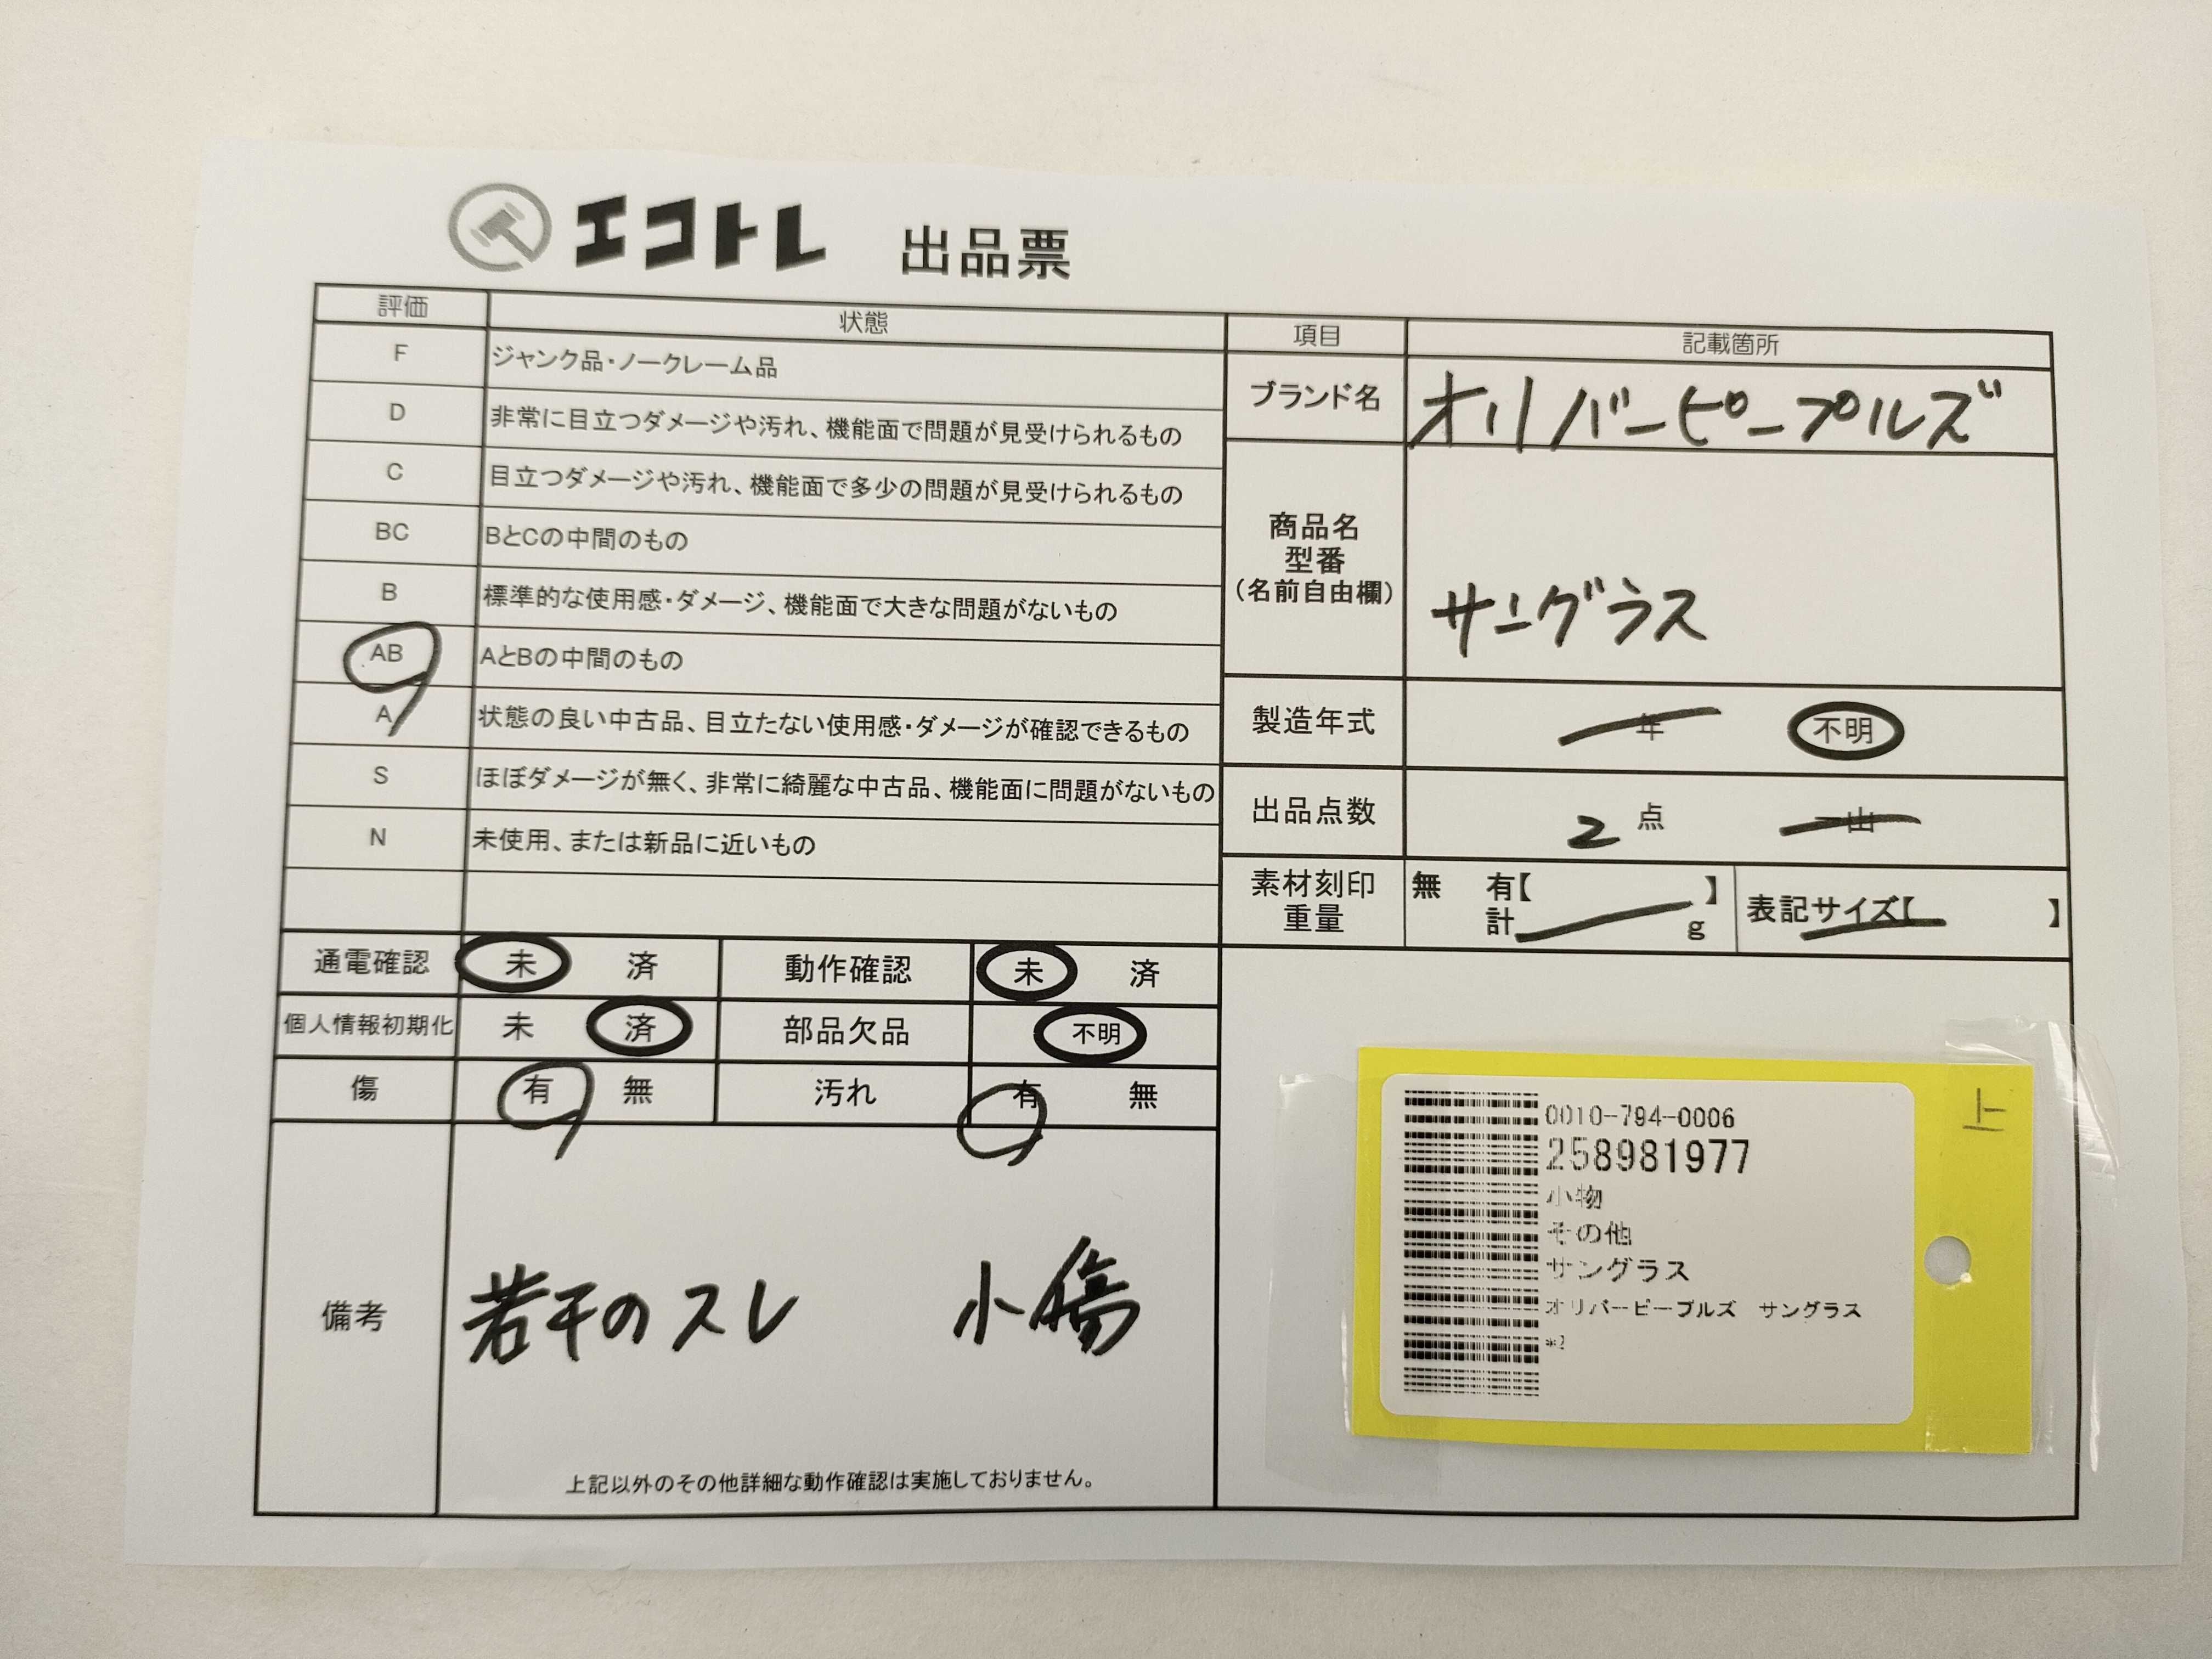 エコトレ 出品票
評価 状態
F ジャンク品・ノークレーム品
D 非常に目立つダメージや汚れ、機能面で問題が見受けられるもの
C 目立つダメージや汚れ、機能面で多少の問題が見受けられるもの
BC BとCの中間のもの
B 標準的な使用感・ダメージ、機能面で大きな問題がないもの
AB AとBの中間のもの
A 状態の良い中古品、目立たない使用感・ダメージが確認できるもの
S ほぼダメージが無く、非常に綺麗な中古品、機能面に問題がないもの
N 未使用、または新品に近いもの
通電確認 未 済 動作確認 未 済
個人情報初期化 未 済 部品欠品 不明
傷 有 無 汚れ 有 無
備考 若干のスレ 小傷
上記以外のその他詳細な動作確認は実施しておりません。
項目 記載箇所
ブランド名 オリバーピープルズ
商品名
型番
(名前自由欄)
サングラス
製造年式 年 不明
出品点数 2 点 一山
素材刻印 無 有【 】
重量 計 g
表記サイズ【 】
上
0010-794-0006
258981977
小物
その他
サングラス
オリバーピープルズ サングラス
*2